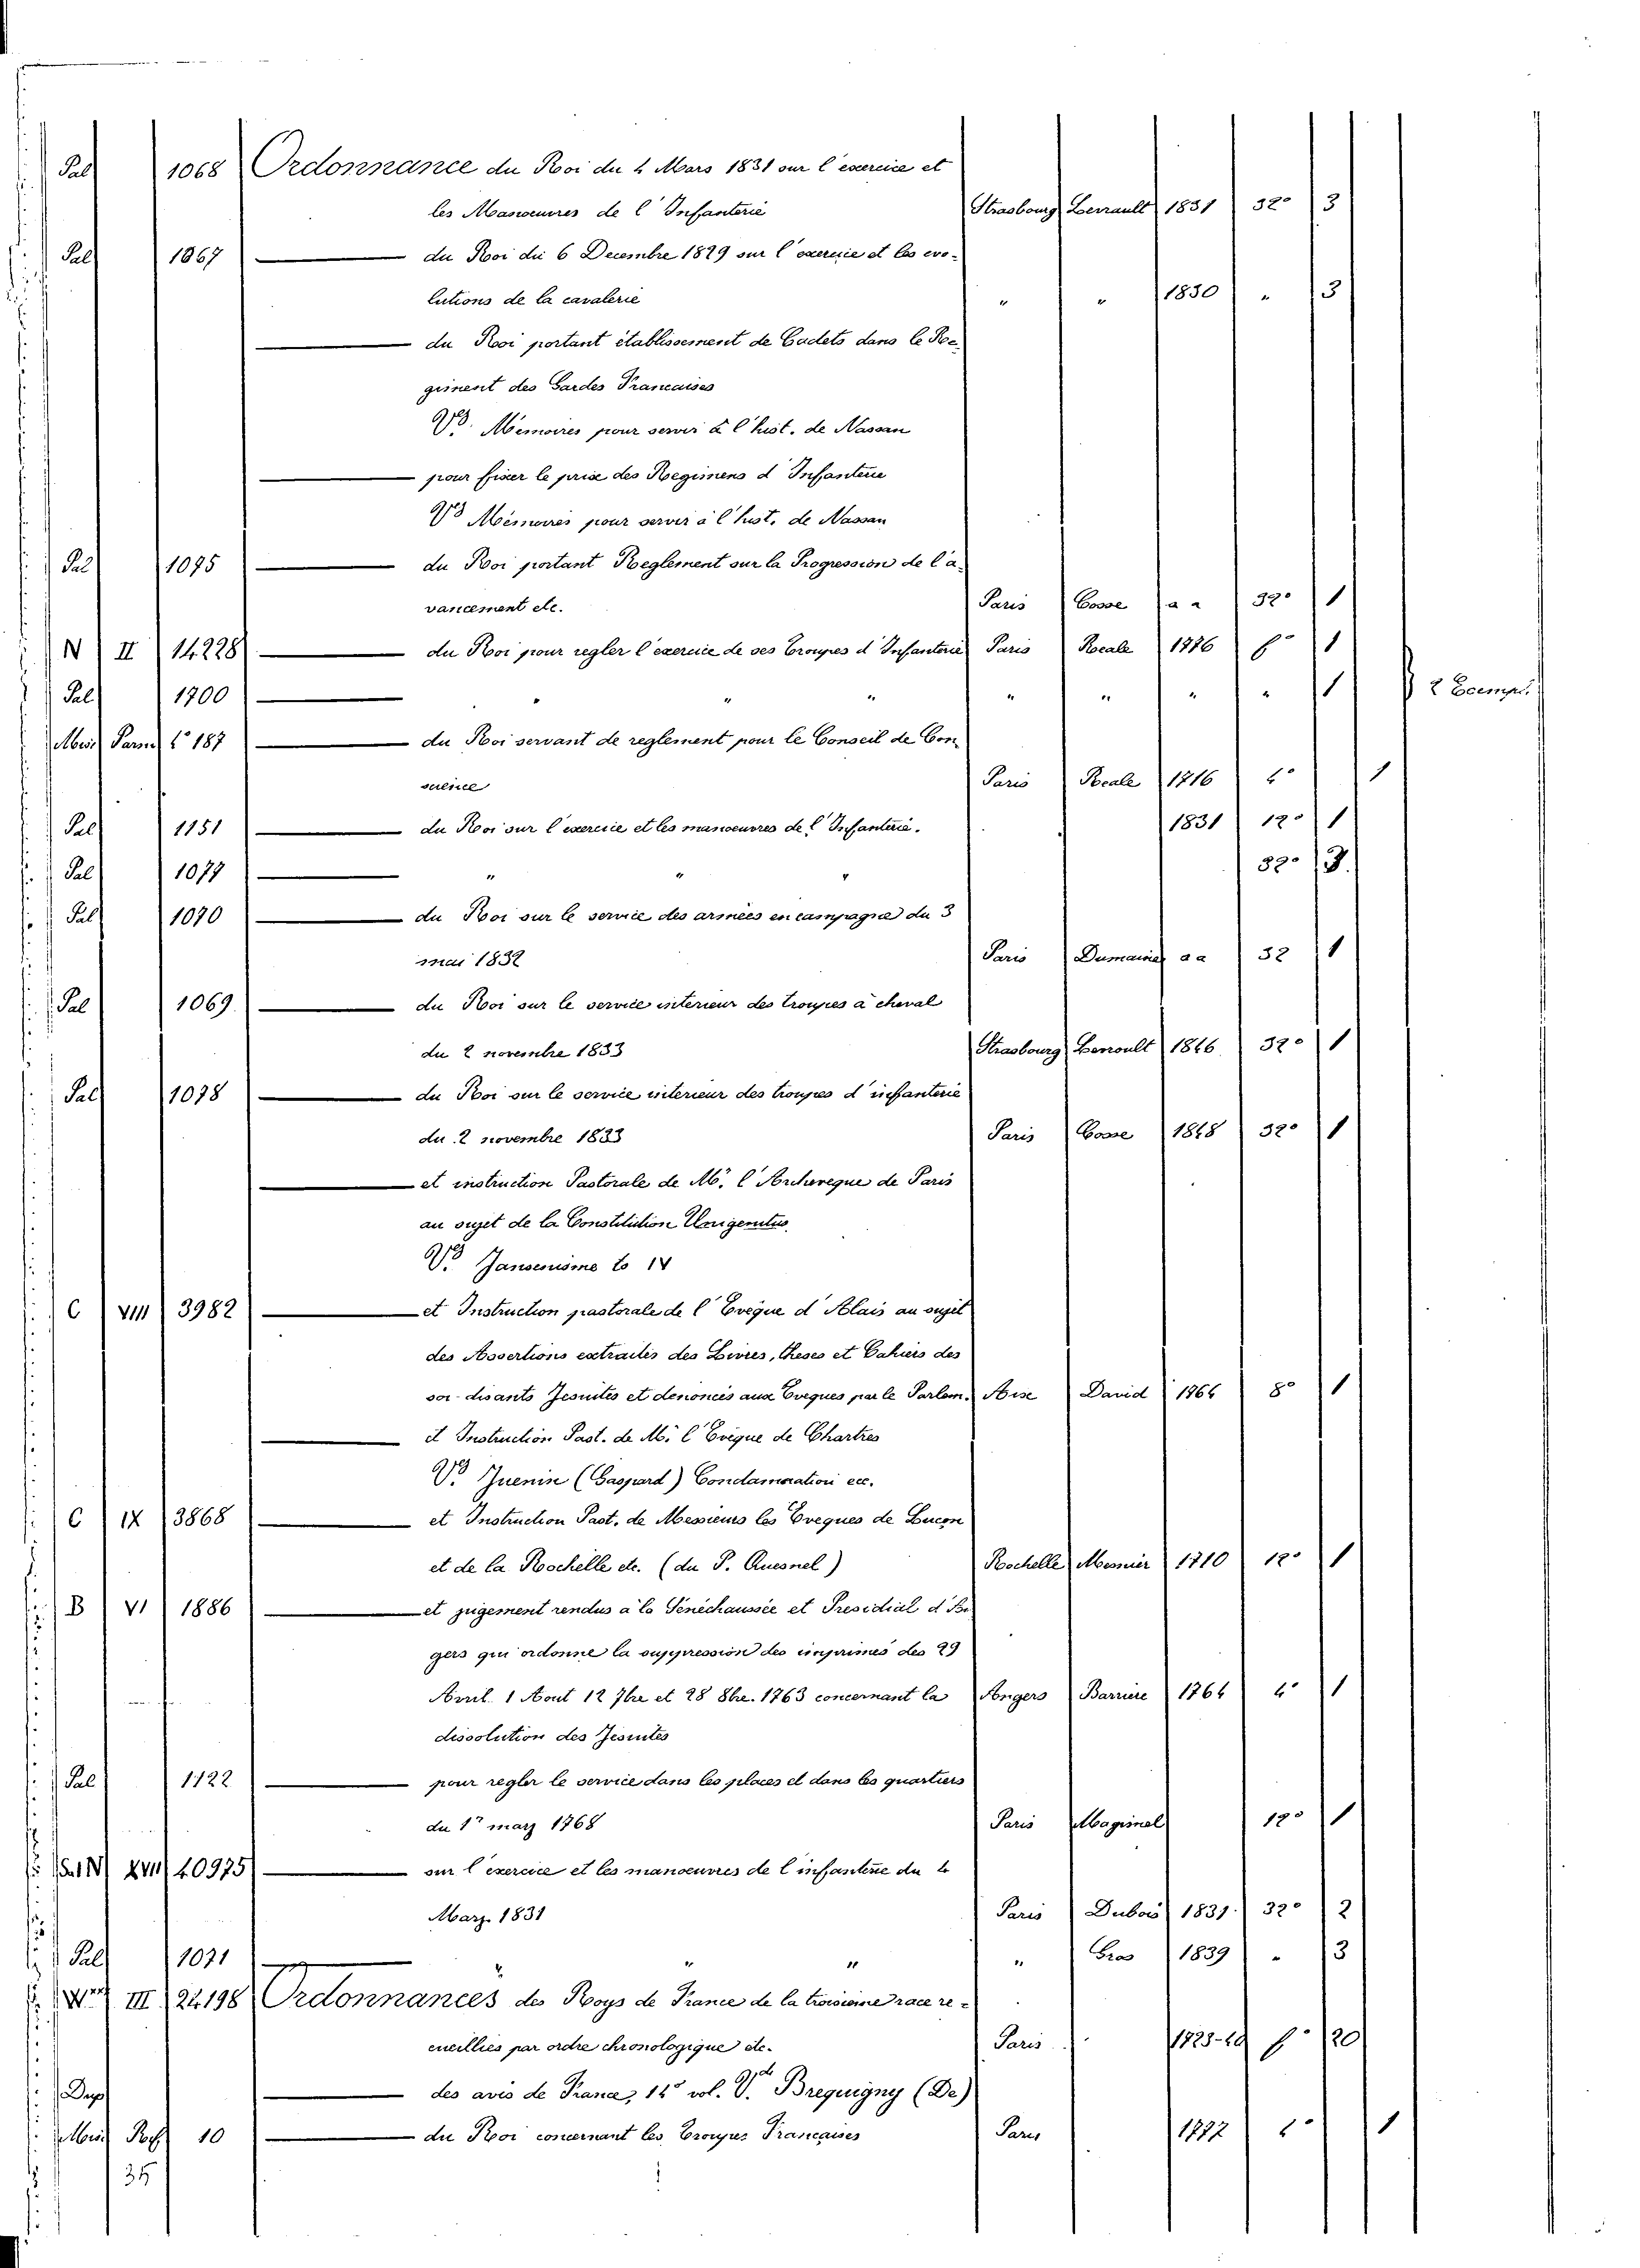 Pal 1068 Ordonnance du Roi du 4 Mars 1831 sur l'exercice et
les Manoeuvres de l'Infanterie Strasbourg Levrault 1831 32° 3
Pal 1067 — du Roi du 6 Decembre 1829 sur l'exercice et les evo-
lutions de la cavalerie " " 1830 " 3
— du Roi portant établissement de Cadets dans le Re-
giment des Gardes Francaises
V° Memoires pour servir a l'hist. de Nassau
— pour fixer le prix des Regimens d'Infanterie
V° Mémoires pour servir à l'hist. de Nassau
Pal 1075 — du Roi portant Reglement sur la Progression de l'a-
vancement etc. Paris Cosse a a 32° 1
N II 14228 — du Roi pour regler l'exercice de ses Troupes d'Infanterie Paris Roeale 1776 f° 1
Pal 1700 — " " " " " " " 1 2 Eempl.
Mus Parm 4° 187 — du Roi servant de reglement pour le Conseil de Con-
science Paris Roeale 1716 4° 1
Pal 1151 — du Roi sur l'exercice et les manoeuvres de l'Infanterie. 1831 12° 1
Pal 1077 — " " " 32° 3.
Pal 1070 — du Roi sur le service des armées en campagne du 3
mai 1832 Paris Dumaine a a 32 1
Pal 1069 — du Roi sur le service interieur des troupes à cheval
du 2 novembre 1833 Strasbourg Levroult 1846 32° 1
Pal 1078 — du Roi sur le service interieur des troupes d'infanterie
du 2 novembre 1833 Paris Cosse 1848 32° 1
— et instruction Pastorale de M. l'Archeveque de Paris
au sujet de la Constitution Unigenitus
V° Jansenisme to 14
C VIII 3982 — et Instruction pastorale de l'Eveque d'Alais au sujet
des Assertions extraites des Livres, theses et Cahiers des
soi-disants Jesuites et denoncés aux Eveques par le Parlem. Aix David 1764 8° 1
— et Instruction Past. de M. l'Evéque de Chartres
V° Juenin (Gaspard) Condamnation ecc.
C IX 3868 — et Instruction Past. de Messieurs les Eveques de Lucon
et de la Rochelle etc. (du P. Quesnel) Rochelle Mesnier 1710 12° 1
B VI 1886 — et jugement rendus a la Senéchaussée et Presidial d'An
gers qui ordonne la suppression des imprimés des 29
Avril. 1 Aout 12 7bre et 28 8bre. 1763 concernant la Angers Barriere 1764 4° 1
dissolution des Jesuites
Pal 1122 — pour regler le service dans les places et dans les quartiers
du 1r marz 1768 Paris Maginel 12° 1
XVII 40975 — sur l'exercice et les manoeuvres de l'infanterie du 4
Marz 1831 Paris Dubois 1831. 32° 2
Pal 1071 — " " " " Gros 1839 " 3
III 24198 Ordonnances des Roys de France de la troisieme race re-
cueillies par ordre chronologique etc. Paris 1723-49 f° 20
Dup — des avis de France, 14° vol. V. Brequigny (De)
10 — du Roi concernant les Troupes Francaises Paris 1772 4° 1
35